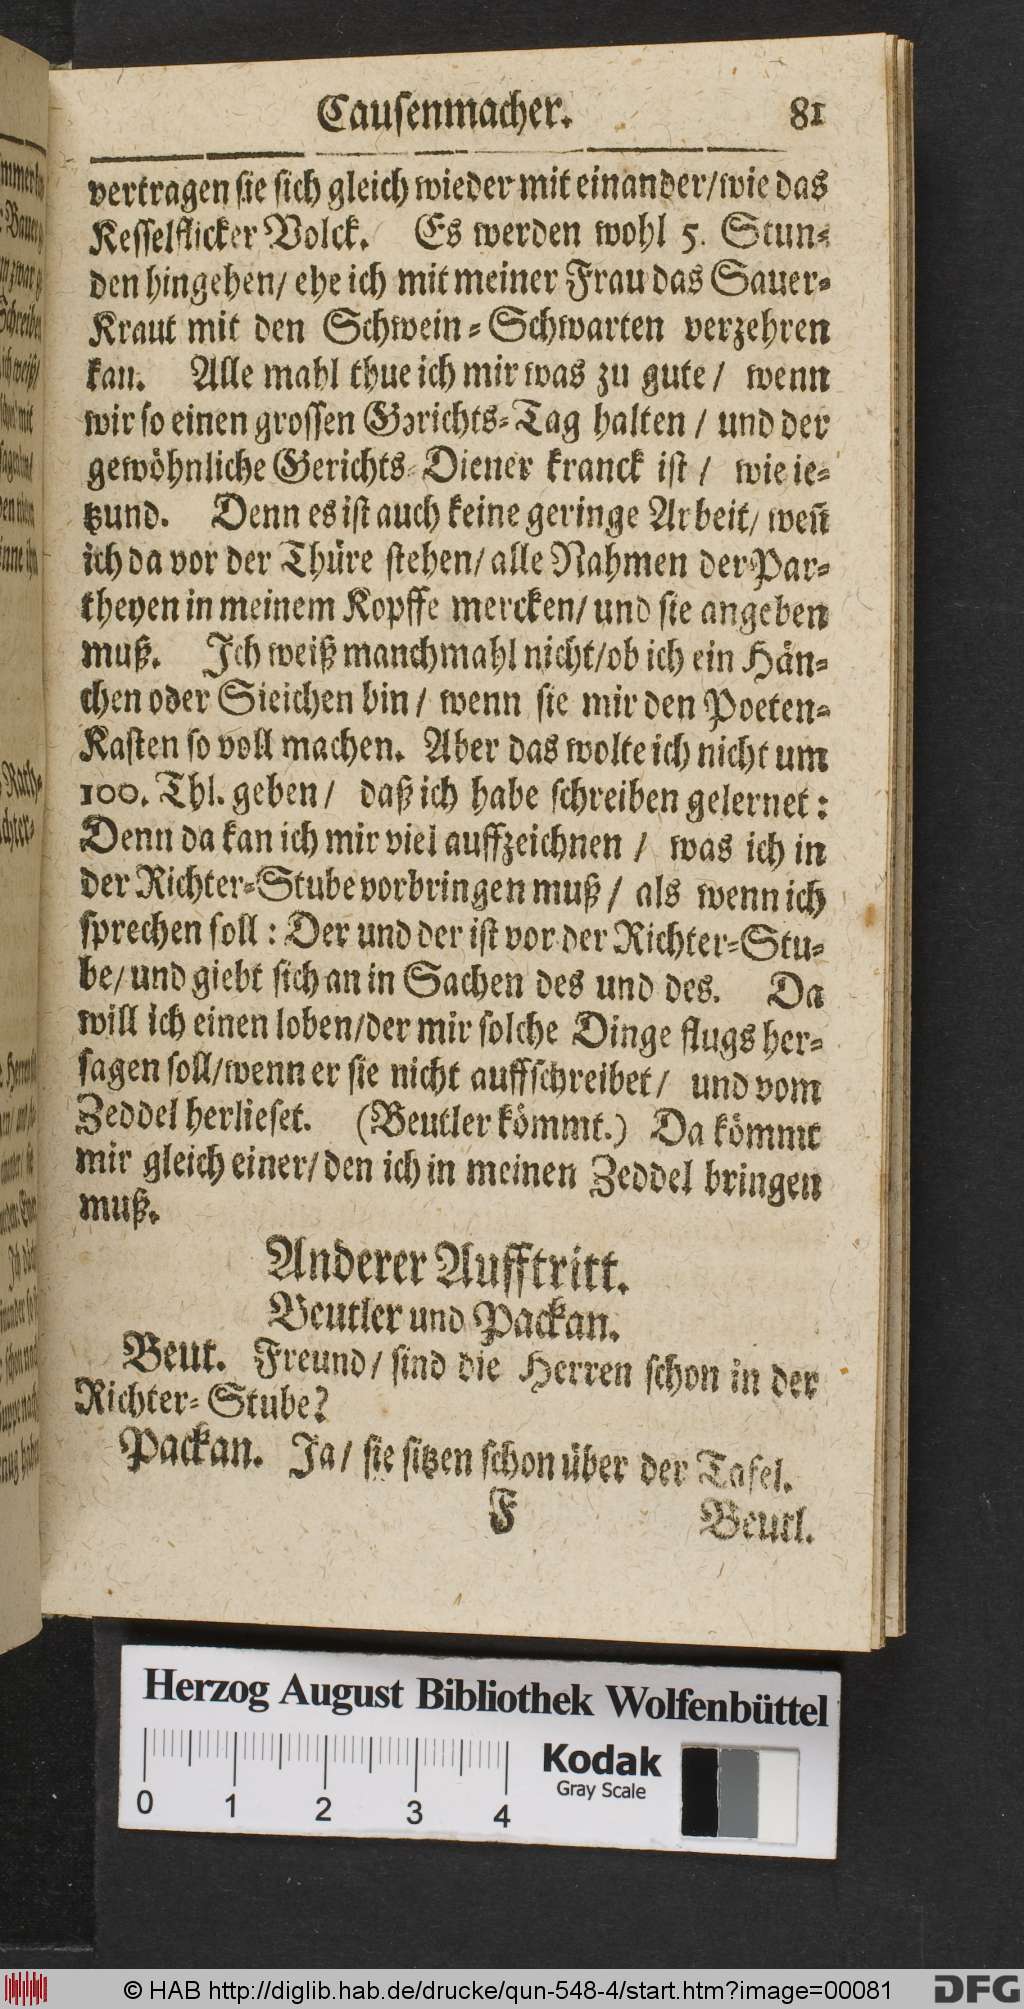 Causenmacher. 81
vertragen sie sich gleich wieder mit einander/wie das
Kesselflicker Volck. Es werden wohl 5. Stun-
den hingehen/ ehe ich mit meiner Frau das Sauer-
Kraut mit den Schwein-Schwarten verzehren
kan. Alle mahl thue ich mir was zu gute/ wenn
wir so einen grossen Gerichts-Tag halten / und der
gewöhnliche Gerichts-Diener kranck ist / wie ie-
tzund. Denn es ist auch keine geringe Arbeit/ weñ
ich da vor der Thüre stehen/ alle Nahmen der Par-
theyen in meinem Kopffe mercken/ und sie angeben
muß. Ich weiß manchmahl nicht/ob ich ein Hän-
chen oder Sieichen bin/ wenn sie mir den Poeten-
Kasten so voll machen. Aber das wolte ich nicht um
100. Thl. geben/ daß ich habe schreiben gelernet:
Denn da kan ich mir viel auffzeichnen / was ich in
der Richter-Stube vorbringen muß / als wenn ich
sprechen soll: Der und der ist vor der Richter-Stu-
be/ und giebt sich an in Sachen des und des. Da
will ich einen loben/der mir solche Dinge flugs her-
sagen soll/wenn er sie nicht auffschreibet/ und vom
Zeddel herlieset. (Beutler kömmt.) Da kömmt
mir gleich einer/ den ich in meinen Zeddel bringen
muß.
Anderer Aufftritt.
Beutler und Packan.
Beut. Freund/ sind die Herren schon in der
Richter-Stube?
Packan. Ja/ sie sitzen schon über der Tafel.
F Beutl.
Herzog August Bibliothek Wolfenbüttel
Kodak
Gray Scale
0 1 2 3 4
© HAB http://diglib.hab.de/drucke/qun-548-4/start.htm?image=00081
DFG